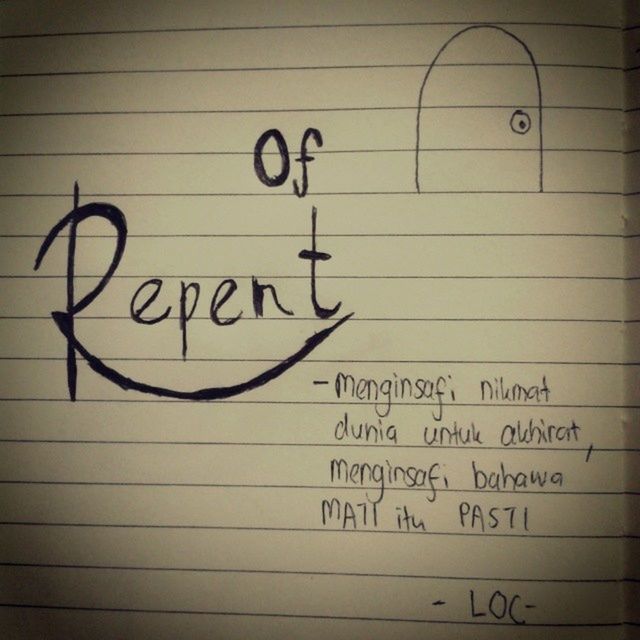 Of
Repent
- menginsafi nikmat
dunia untuk akhirat,
menginsafi bahawa
MATI itu PASTI
- LOC -